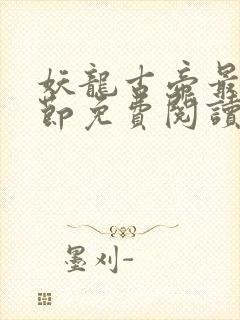 妖龍古帝最
節免費閱讀
墨刈-